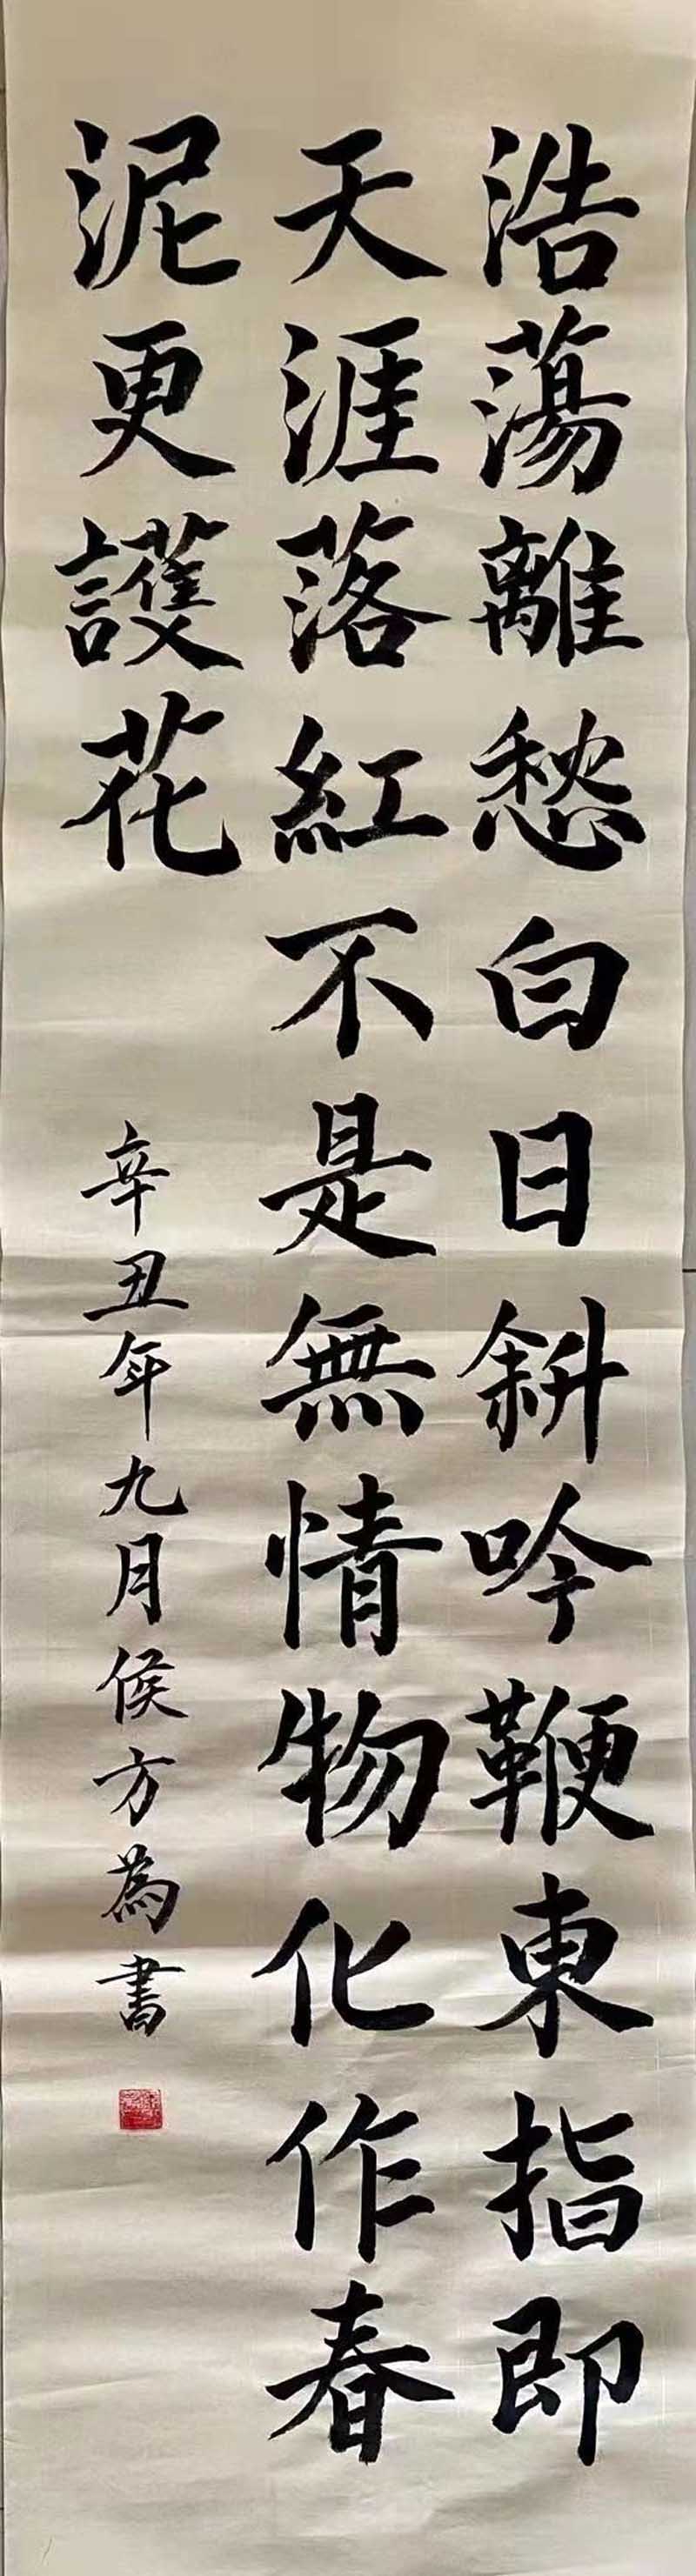 浩蕩離愁白日斜吟鞭東指即
天涯落紅不是無情物化作春
泥更護花
辛丑年九月侯方為書